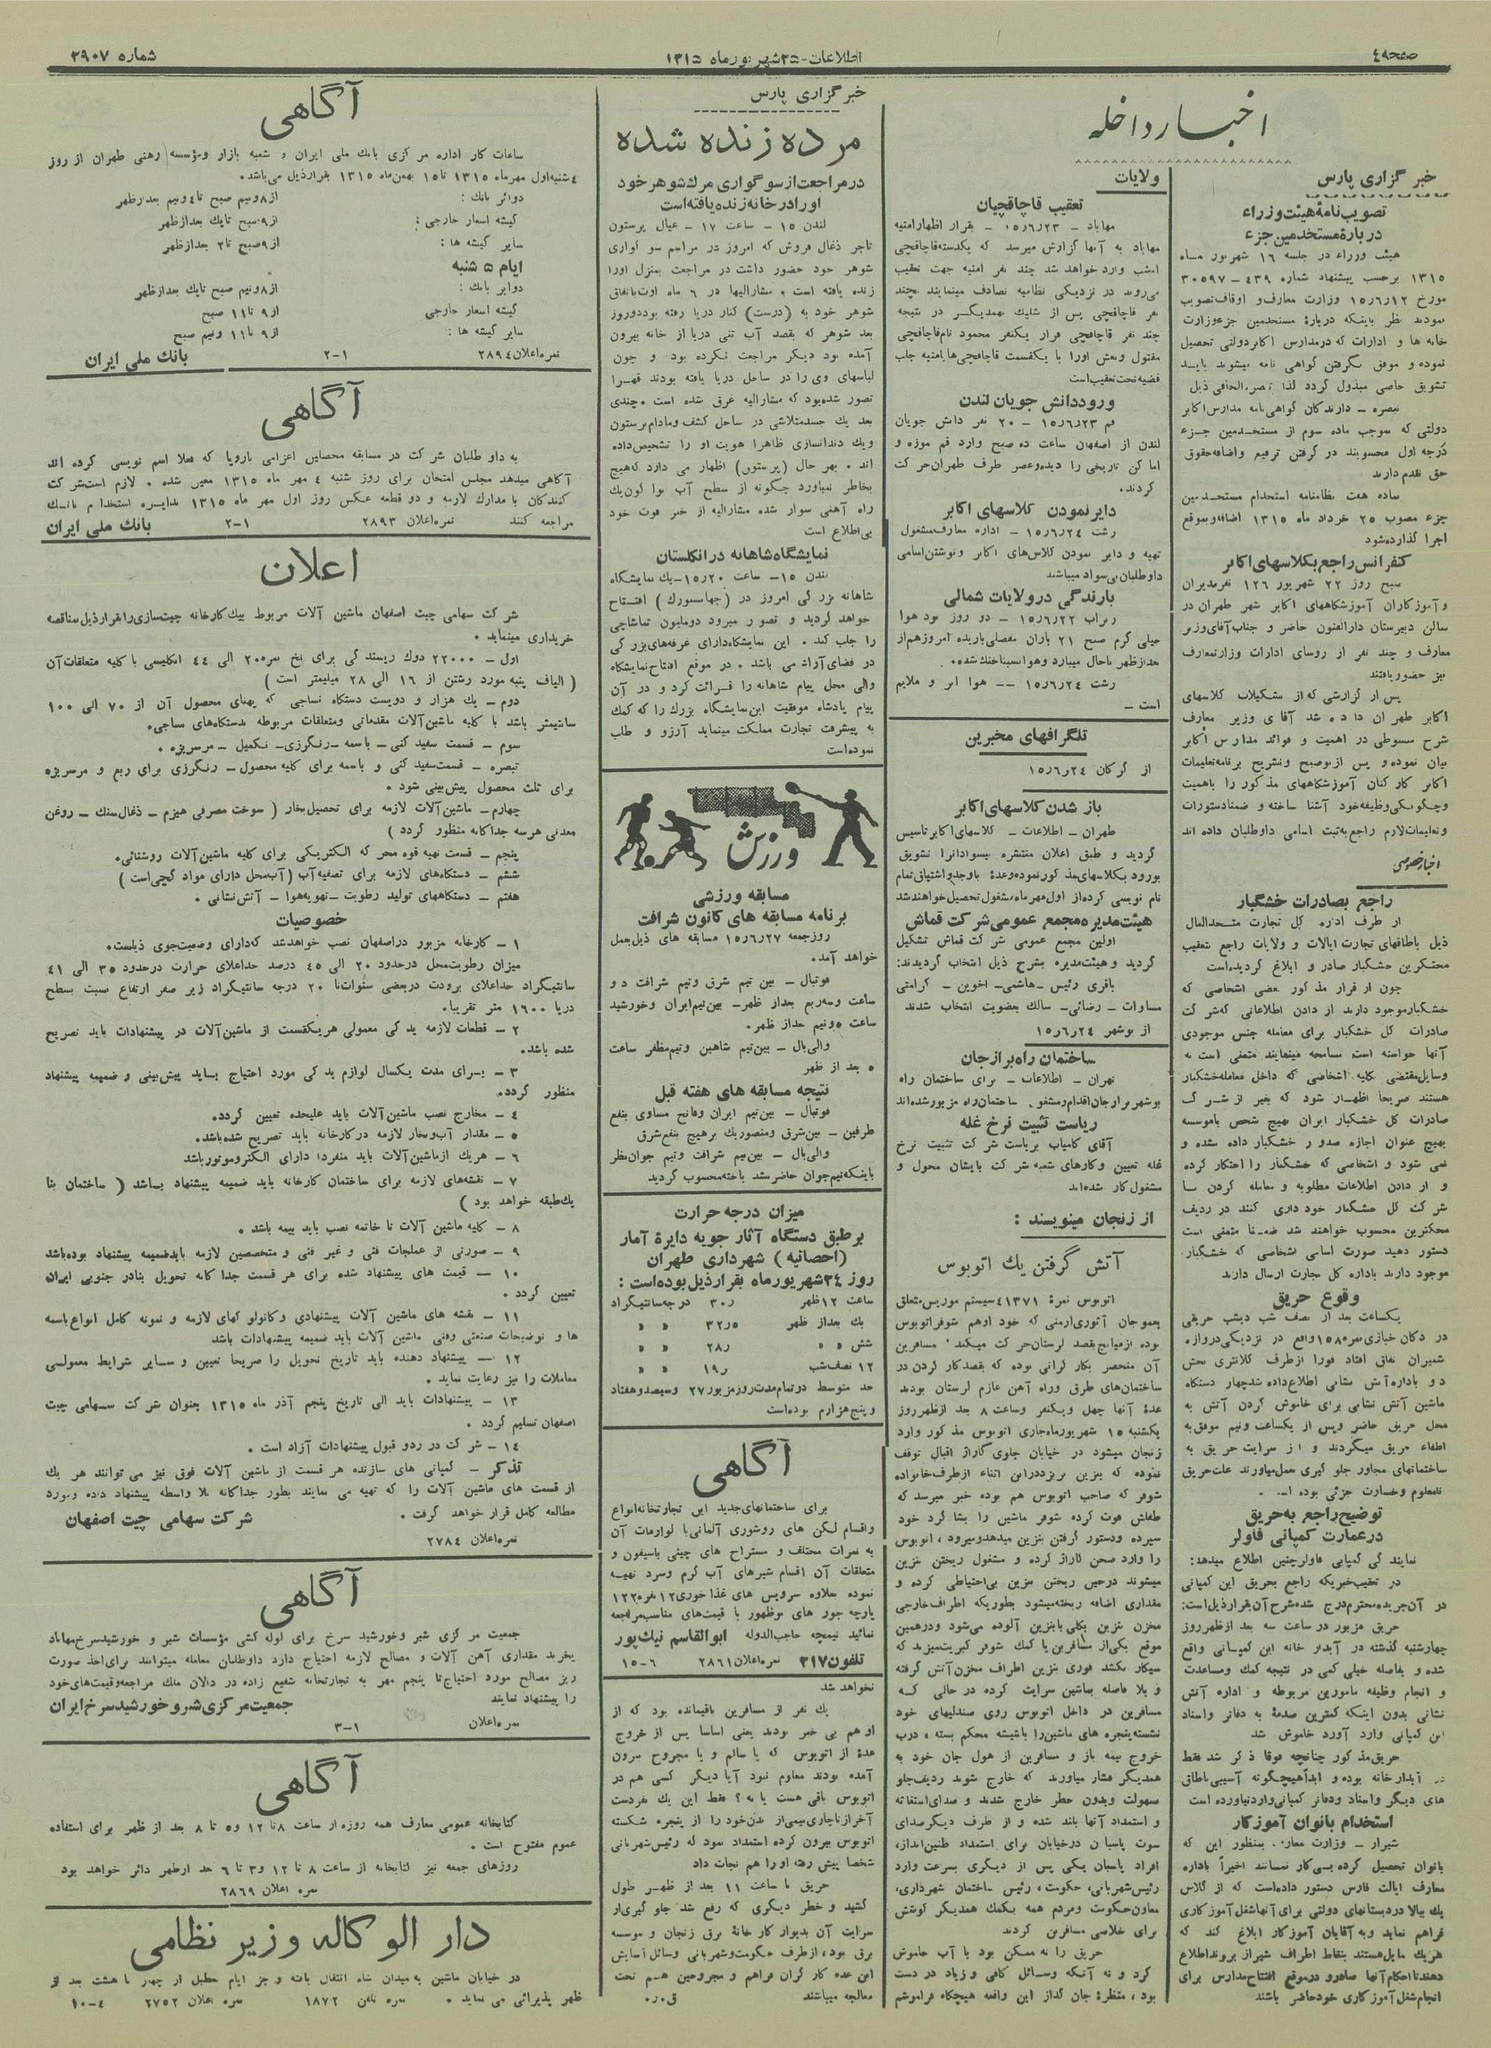 صفحه ٤
اطلاعات - ٢٥ شهریورماه ١٣١٥
شماره ٢٩٠٧
اخبار داخله
خبرگزاری پارس
تصویب‌نامهٔ هیئت وزراء
دربارهٔ مستخدمین جزء
هیئت وزراء در جلسه ١٦ شهریور ماه
١٣١٥ برحسب پیشنهاد شماره ٤٣٩-٣٠٥٩٧
مورخ ١٥٫٦٫١٢ وزارت معارف و اوقاف تصویب
نمودند نظر باینکه دربارهٔ مستخدمین جزء وزارت
خانه ها و ادارات که در مدارس اکابر دولتی تحصیل
نموده و موفق بگرفتن گواهی نامه میشوند باید
تشویق خاصی مبذول گردد لذا تبصره الحاقی ذیل
تبصره - دارندگان گواهی نامه مدارس اکابر
دولتی که بموجب ماده سوم از مستخدمین جزء
درجه اول محسوبند در گرفتن ترفیع و اضافه حقوق
حق تقدم دارند
بماده هفت نظامنامه استخدام مستخدمین
جزء مصوب ٢٥ خرداد ماه ١٣١٥ اضافه و بموقع
اجرا گذارده شود
کنفرانس راجع بکلاسهای اکابر
صبح روز ٢٢ شهریور ١٢٦ نفر مدیران
و آموزگاران آموزشگاههای اکابر شهر طهران در
سالن دبیرستان دارالفنون حاضر و جناب آقای وزیر
معارف و چند نفر از روسای ادارات وزارت معارف
نیز حضور یافتند
پس از گزارشی که از تشکیلات کلاسهای
اکابر طهران داده شد آقای وزیر معارف
شرح مبسوطی در اهمیت و فوائد مدارس اکابر
بیان نموده و پس از توضیح و تشریح برنامه تعلیمات
اکابر کارکنان آموزشگاههای مذکور را باهمیت
و چگونگی وظیفه خود آشنا ساخته و ضمنا دستورات
و تعلیمات لازم راجع به ثبت اسامی داوطلبان داده اند
اخبار خصوصی
راجع بصادرات خشگبار
از طرف اداره کل تجارت متحدالمال
ذیل باطاقهای تجارت ایالات و ولایات راجع بتعقیب
محتکرین خشگبار صادر و ابلاغ گردیده است
چون از قرار مذکور بعضی اشخاصی که
خشکبار موجود دارند از دادن اطلاعاتی که شرکت
صادرات کل خشگبار برای معامله جنس موجودی
آنها خواسته است مسامحه مینمایند متمنی است به
وسایل مقتضی کلیه اشخاصی که داخل معامله خشکبار
هستند صریحا اظهار شود که بغیر از شرکت
صادرات کل خشگبار ایران بهیچ شخص یا موسسه
بهیچ عنوان اجازه صدور خشگبار داده نشده و
نمی شود و اشخاصی که خشگبار را احتکار کرده
و از دادن اطلاعات مطلوبه و معامله کردن با
شرکت کل خشگبار خودداری کنند در ردیف
محتکرین محسوب خواهند شد ضمنا متمنی است
دستور دهید صورت اسامی اشخاصی که خشگبار
موجود دارند باداره کل تجارت ارسال دارند
وقوع حریق
یکساعت بعد از نصف شب دیشب حریقی
در دکان خبازی نمره ١٥٨ واقع در نزدیکی دروازه
شمیران اتفاق افتاد فورا از طرف کلانتری بخش
دو باداره آتش نشانی اطلاع داده شد چهار دستگاه
ماشین آتش نشانی برای خاموش کردن آتش به
محل حریق حاضر و پس از یکساعت و نیم موفق به
اطفاء حریق میگردند و از سرایت حریق به
ساختمانهای مجاور جلوگیری بعمل میاورند علت حریق
نامعلوم و خسارت جزئی بوده است.
توضیح راجع به حریق
در عمارت کمپانی فاولر
نمایندگی کمپانی فاولر چنین اطلاع میدهد:
در تعقیب خبریکه راجع بحریق این کمپانی
در آن جریده محترم درج شده شرح آن بقرار ذیل است:
حریق مزبور در ساعت سه بعد از ظهر روز
چهارشنبه گذشته در آبدار خانه این کمپانی واقع
شده و بفاصله خیلی کمی در نتیجه کمک و مساعدت
و انجام وظیفه مامورین مربوطه و اداره آتش
نشانی بدون اینکه کمترین صدمهٔ به دفاتر و اسناد
این کمپانی وارد آورد خاموش شد
حریق مذکور چنانچه فوقا ذکر شد فقط
در آبدارخانه بوده و ابدا هیچگونه آسیبی باطاق
های دیگر و اسناد و دفاتر کمپانی وارد نیاورده است
استخدام بانوان آموزگار
شیراز - وزارت معارف بمنظور این که
بانوان تحصیل کرده بی‌کار نمانند اخیراً باداره
معارف ایالت فارس دستور داده است که از کلاس
یک ببالا در دبستانهای دولتی برای آنها شغل آموزگاری
فراهم نماید و به آقایان آموزگار ابلاغ کند که
هریک مایل هستند بنقاط اطراف شیراز بروند اطلاع
دهند تا احکام آنها صادر و در موقع افتتاح مدارس برای
انجام شغل آموزگاری خود حاضر باشند
ولایات
تعقیب قاچاقچیان
مهاباد - ١٥٫٦٫٢٣ - بقرار اظهار امنیه
مهاباد به آنها گزارش میرسد که یکدسته قاچاقچی
امشب وارد خواهد شد چند نفر امنیه جهت تعقیب
می‌روند در نزدیکی نظامیه تصادف مینمایند بچند
نفر قاچاقچی پس از شلیک بهمدیگر در نتیجه
چند نفر قاچاقچی فرار یکنفر محمود نام قاچاقچی
مقتول و نعش اورا با یکقسمت قاچاقچی‌ها بامنیه جلب
قضیه تحت تعقیب است
ورود دانش جویان لندن
قم ١٥٫٦٫٢٣ - ٢٠ نفر دانش جویان
لندن از اصفهان ساعت ده صبح وارد قم موزه و
اماکن تاریخی را دیده و عصر طرف طهران حرکت
کردند.
دایر نمودن کلاسهای اکابر
رشت ١٥٫٦٫٢٤ - اداره معارف مشغول
تهیه و دایر نمودن کلاس‌های اکابر و نوشتن اسامی
داوطلبان بی‌سواد میباشد
بارندگی در ولایات شمالی
زیراب ١٥٫٦٫٢٢ - دو روز بود هوا
خیلی گرم صبح ٢١ باران مفصلی باریده امروز هم از
بعد از ظهر تا حال میبارد و هوا نسبتا خنک شده.
رشت ١٥٫٦٫٢٤ -- هوا ابر و ملایم
است -
تلگرافهای مخبرین
از گرگان ١٥٫٦٫٢٤
باز شدن کلاسهای اکابر
طهران - اطلاعات - کلاسهای اکابر تاسیس
گردید و طبق اعلان منتشره بیسوادانرا تشویق
بورود بکلاسهای مذکور نموده و عدهٔ با وجد و اشتیاق تمام
نام نویسی کرده از اول مهرماه مشغول تحصیل خواهند شد
هیئت مدیره مجمع عمومی شرکت قماش
اولین مجمع عمومی شرکت قماش تشکیل
گردید و هیئت مدیره بشرح ذیل انتخاب گردیدند:
باقری رئیس - هاشمی - اخوین - کرامتی
مساوات - رضائی - سالک بعضویت انتخاب شدند
از بوشهر ١٥٫٦٫٢٤
ساختمان راه برازجان
تهران - اطلاعات - برای ساختمان راه
بوشهر برازجان اقدام و مشغول ساختمان راه مزبور شده اند
ریاست تثبیت نرخ غله
آقای کامیاب بریاست شرکت تثبیت نرخ
غله تعیین و کارهای شعبه شرکت بایشان محول و
مشغول کار شده اند
از زنجان مینویسند :
آتش گرفتن یک اتوبوس
اتوبوس نمره ٤١٣٧١ سیستم موریس متعلق
بعموجان آثوری ارمنی که خود او هم شوفر اتوبوس
بوده از میانج بقصد لرستان حرکت میکند. مسافرین
آن منحصر بکار گرانی بوده که بقصد کار کردن در
ساختمان‌های طرق و راه آهن عازم لرستان بودند
عدهٔ آنها چهل و یکنفر و ساعت ٨ بعد از ظهر روز
یکشنبه ١٥ شهریور ماه جاری اتوبوس مذکور وارد
زنجان میشود در خیابان جلوی گاراژ اقبال توقف
نموده که بنزین بریزد در این اثناء از طرف خانواده
شوفر که صاحب اتوبوس هم بوده خبر میرسد که
طفلش فوت کرده شوفر ماشین را بشاگرد خود
سپرده و دستور گرفتن بنزین میدهد و میرود، اتوبوس
را وارد صحن گاراژ کرده و مشغول ریختن بنزین
میشوند درحین ریختن بنزین بی‌احتیاطی کرده و
مقداری اضافه ریخته میشود بطوریکه اطراف خارجی
مخزن بنزین بکلی بابنزین آلوده می‌شود و در همین
موقع یکی از مسافرین یا کمک شوفر کبریت میزند که
سیگار بکشد فوری بنزین اطراف مخزن آتش گرفته
و بلا فاصله بماشین سرایت کرده در حالی که
مسافرین در داخل اتوبوس روی صندلیهای خود
نشسته پنجره های ماشین را باشیشه محکم بسته، درب
خروج نیمه باز و مسافرین از هول جان خود به
همدیگر فشار میاورند که خارج شوند ردیف جلو
سهولت وبدون خطر خارج شدند و صدای استغاثه
و استمداد آنها بلند شده و از طرف دیگر صدای
سوت پاسبان در خیابان برای استمداد طنین انداز،
افراد پاسبان یکی پس از دیگری بسرعت وارد
رئیس شهربانی، حکومت، رئیس ساختمان شهرداری،
معاون حکومت و مردم همه بکمک همدیگر کوشش
برای خلاصی مسافرین کردند
حریق را نه ممکن بود با آب خاموش
کرد و نه آنکه وسائل کافی و زیاد در دست
بود، منظرهٔ جان گداز این واقعه هیچگاه فراموشم
خبرگزاری پارس
مرده زنده شده
در مراجعت از سوگواری مرگ شوهر خود
او را در خانه زنده یافته است
لندن ١٥ - ساعت ١٧ - عیال پرستون
تاجر ذغال فروش که امروز در مراسم سوگواری
شوهر خود حضور داشت در مراجعت بمنزل اورا
زنده یافته است. مشارالیها در ٦ ماه اوت باتفاق
شوهر خود به (درست) کنار دریا رفته بود دو روز
بعد شوهر که بقصد آب تنی دریا از خانه بیرون
آمده بود دیگر مراجعت نکرده بود و چون
لباسهای وی را در ساحل دریا یافته بودند قهرا
تصور شده بود که مشارالیه غرق شده است. چندی
بعد یک جسد متلاشی در ساحل کشف و مادام پرستون
و یک دندانسازی ظاهرا هویت او را تشخیص داده
اند. بهر حال (پرستون) اظهار می دارد که هیچ
بخاطر نمیاورد چگونه از سطح آب بوا گون یک
راه آهنی سوار شده مشارالیه از خبر فوت خود
بی‌اطلاع است
نمایشگاه شاهانه در انگلستان
لندن ١٥ - ساعت ١٥٫٢٠ - یک نمایشگاه
شاهانه بزرگی امروز در (جهانسبورک) افتتاح
خواهد گردید و تصور میرود دو ملیون تماشاچی
را جلب کند. این نمایشگاه دارای غرفه‌های بزرگی
در فضای آزاد می باشد. در موقع افتتاح نمایشگاه
والی محل پیام شاهانه را قرائت کرد و در آن
پیام پادشاه موفقیت این نمایشگاه بزرگ را که کمک
به پیشرفت تجارت مملکت مینماید آرزو و طلب
نموده است
ورزش
مسابقه ورزشی
برنامه مسابقه های کانون شرافت
روز جمعه ١٥٫٦٫٢٧ مسابقه های ذیل بعمل
خواهد آمد.
فوتبال - بین تیم شرق و تیم شرافت دو
ساعت و سه ربع بعد از ظهر - بین تیم ایران و خورشید
ساعت ٥ و نیم بعد از ظهر.
والی‌بال - بین تیم شاهین و تیم مظفر ساعت
٥ بعد از ظهر
نتیجه مسابقه های هفته قبل
فوتبال - بین تیم ایران و فاتح مساوی بنفع
طرفین - بین شرق و منصور یک بر هیچ بنفع شرق
والی‌بال - بین تیم شرافت و تیم جوان نظر
باینکه تیم جوان حاضر نشد باخته محسوب گردید
میزان درجه حرارت
برطبق دستگاه آثار جویه دایرهٔ آمار
(احصائیه) شهرداری طهران
روز ٢٤ شهریورماه بقرار ذیل بوده است:
ساعت ١٢ ظهر ٣٠٫ درجه سانتیگراد
یک بعد از ظهر ٣٢٫٥ « «
شش « « ٢٨٫ « «
١٢ نصف شب ١٩٫ « «
حد متوسط در تمام مدت روز مزبور ٢٧ و سیصد و هفتاد
و پنج هزارم بوده است
آگاهی
برای ساختمانهای جدید این تجارتخانه انواع
و اقسام لگن های روشوری آلمانی با لوازمات آن
به نمرات مختلف و مستراح های چینی باسیفون و
متعلقات آن اقسام شیرهای آب گرم و سرد تهیه
نموده بعلاوه سرویس های غذا خوری ١٢ نفره ١٢٢
پارچه جور های نوظهور با قیمت‌های مناسب مراجعه
نمائید تیمچه حاجب‌الدوله ابوالقاسم نیک‌پور
تلفون ٣١٧ نمره اعلان ٢٨٦١ ٦-١٥
نخواهد شد
یک نفر از مسافرین باقیمانده بود که از
او هم بی خبر بودند یعنی اساسا پس از خروج
عدهٔ از اتوبوس که یا سالم و یا مجروح بیرون
آمده بودند معلوم نبود آیا دیگر کسی هم در
اتوبوس باقی هست یا نه؟ فقط این یک نفر دست
آخر از ناچاری نیمی از بدن خود را از پنجره شکسته
اتوبوس بیرون کرده استمداد نمود که رئیس شهربانی
شخصا پیش رفته او را هم نجات داد
حریق تا ساعت ١١ بعد از ظهر طول
کشید و خطر دیگری که رفع شد جلوگیری از
سرایت آن بدیوار کارخانهٔ برق زنجان و موسسه
برق بود، از طرف حکومت و شهربانی وسائل آسایش
این عده کارگران فراهم و مجروحین هم تحت
معالجه میباشند ق.ر.
آگاهی
ساعات کار اداره مرکزی بانک ملی ایران و شعبه بازار و مؤسسه رهنی طهران از روز
٤ شنبه اول مهرماه ١٣١٥ تا ١٥ بهمن ماه ١٣١٥ بقرار ذیل می‌باشد.
دوائر بانک : از ٨ و نیم صبح تا ٤ و نیم بعد از ظهر
گیشه اسعار خارجی : از ٩ صبح تا یک بعد از ظهر
سایر گیشه ها : از ٩ صبح تا ٢ بعد از ظهر
ایام ٥ شنبه
دوایر بانک : از ٨ و نیم صبح تا یک بعد از ظهر
گیشه اسعار خارجی از ٩ تا ١١ صبح
سایر گیشه ها : از ٩ تا ١١ و نیم صبح
نمره اعلان ٢٨٩٤ ١-٢ بانک ملی ایران
آگاهی
به داو طلبان شرکت در مسابقه محصلین اعزامی باروپا که فعلا اسم نویسی کرده اند
آگاهی میدهد مجلس امتحان برای روز شنبه ٤ مهر ماه ١٣١٥ معین شده. لازم است شرکت
کنندگان با مدارک لازمه و دو قطعه عکس روز اول مهر ماه ١٣١٥ بدایره استخدام بانک
مراجعه کنند نمره اعلان ٢٨٩٣ ١-٢ بانک ملی ایران
اعلان
شرکت سهامی چیت اصفهان ماشین آلات مربوط بیک کارخانه چیت سازی را بقرار ذیل بمناقصه
خریداری مینماید.
اول - ٢٢٠٠٠ دوک ریسندگی برای نخ نمره ٢٠ الی ٤٤ انگلیسی با کلیه متعلقات آن
( الیاف پنبه مورد رشتن از ١٦ الی ٢٨ میلیمتر است )
دوم - یک هزار و دویست دستگاه نساجی که پهنای محصول آن از ٧٠ الی ١٠٠
سانتیمتر باشد با کلیه ماشین آلات مقدماتی و متعلقات مربوطه بدستگاه‌های نساجی.
سوم - قسمت سفید کنی - باسمه - رنگرزی - تکمیل - مرسریزه.
تبصره - قسمت سفید کنی و باسمه برای کلیه محصول - رنگرزی برای ربع و مرسریزه
برای ثلث محصول پیش‌بینی شود.
چهارم - ماشین آلات لازمه برای تحصیل بخار ( سوخت مصرفی هیزم - ذغال سنگ - روغن
معدنی هر سه جداگانه منظور گردد )
پنجم - قسمت تهیه قوه محرکه الکتریکی برای کلیه ماشین آلات روشنائی.
ششم - دستگاه‌های لازمه برای تصفیه آب ( آب محل دارای مواد گچی است )
هفتم - دستگاههای تولید رطوبت - تهویه هوا - آتش نشانی.
خصوصیات
١ - کارخانه مزبور در اصفهان نصب خواهد شد که دارای وضعیت جوی ذیل است.
میزان رطوبت محل در حدود ٢٠ الی ٤٥ درصد حداعلای حرارت در حدود ٣٥ الی ٤١
سانتیگراد حداعلای برودت در بعضی سنوات تا ٢٠ درجه سانتیگراد زیر صفر ارتفاع نسبت بسطح
دریا ١٦٠٠ متر تقریبا.
٢ - قطعات لازمه یدکی معمولی هر یکقسمت از ماشین آلات در پیشنهادات باید تصریح
شده باشد.
٣ - برای مدت یکسال لوازم یدکی مورد احتیاج باید پیش بینی و ضمیمه پیشنهاد
منظور گردد.
٤ - مخارج نصب ماشین آلات باید علیحده تعیین گردد.
٥ - مقدار آب و بخار لازمه در کارخانه باید تصریح شده باشد.
٦ - هر یک از ماشین آلات باید منفردا دارای الکتروموتور باشد
٧ - نقشه‌های لازمه برای ساختمان کارخانه باید ضمیمه پیشنهاد باشد ( ساختمان بنا
یک طبقه خواهد بود )
٨ - کلیه ماشین آلات تا خاتمه نصب باید بیمه باشد.
٩ - صورتی از عملجات فنی و غیر فنی و متخصصین لازمه باید ضمیمه پیشنهاد بوده باشد
١٠ - قیمت های پیشنهاد شده برای هر قسمت جداگانه تحویل بنادر جنوبی ایران
تعیین گردد.
١١ - نقشه های ماشین آلات پیشنهادی و کاتولوگهای لازمه و نمونه کامل انواع باسمه
ها و توضیحات صنعتی و فنی ماشین آلات باید ضمیمه پیشنهادات باشد
١٢ - پیشنهاد دهنده باید تاریخ تحویل را صریحا تعیین و سایر شرایط معمولی
معاملات را نیز رعایت نماید.
١٣ - پیشنهادات باید الی تاریخ پنجم آذر ماه ١٣١٥ بعنوان شرکت سهامی چیت
اصفهان تسلیم گردد.
١٤ - شرکت در ردو قبول پیشنهادات آزاد است.
تذکر - کمپانی های سازنده هر قسمت از ماشین آلات فوق نیز می توانند هر یک
از قسمت های ماشین آلات را که تهیه می نمایند بطور جداگانه بلا واسطه پیشنهاد داده و مورد
مطالعه کامل قرار خواهد گرفت. شرکت سهامی چیت اصفهان
نمره اعلان ٢٧٨٤
آگاهی
جمعیت مرکزی شیر و خورشید سرخ برای لوله کشی مؤسسات شیر و خورشید سرخ مهاباد
بخرید مقداری آهن آلات و مصالح لازمه احتیاج دارد داوطلبان معامله میتوانند برای اخذ صورت
ریز مصالح مورد احتیاج تا پنجم مهر به تجارتخانه شفیع زاده در دالان ملک مراجعه و قیمت‌های خود
را پیشنهاد نمایند جمعیت مرکزی شیر و خورشید سرخ ایران
نمره اعلان ١-٣
آگاهی
کتابخانه عمومی معارف همه روزه از ساعت ٨ تا ١٢ و ٥ تا ٨ بعد از ظهر برای استفاده
عموم مفتوح است.
روزهای جمعه نیز کتابخانه از ساعت ٨ تا ١٢ و ٣ تا ٦ بعد از ظهر دائر خواهد بود
نمره اعلان ٢٨٦٩
دار الوکاله وزیر نظامی
در خیابان ماشین به میدان شاه انتقال یافته و جز ایام تعطیل از چهار تا هشت بعد از
ظهر پذیرائی می نماید. نمره تلفن ١٨٧٢ نمره اعلان ٢٧٥٢ ٤-١٠